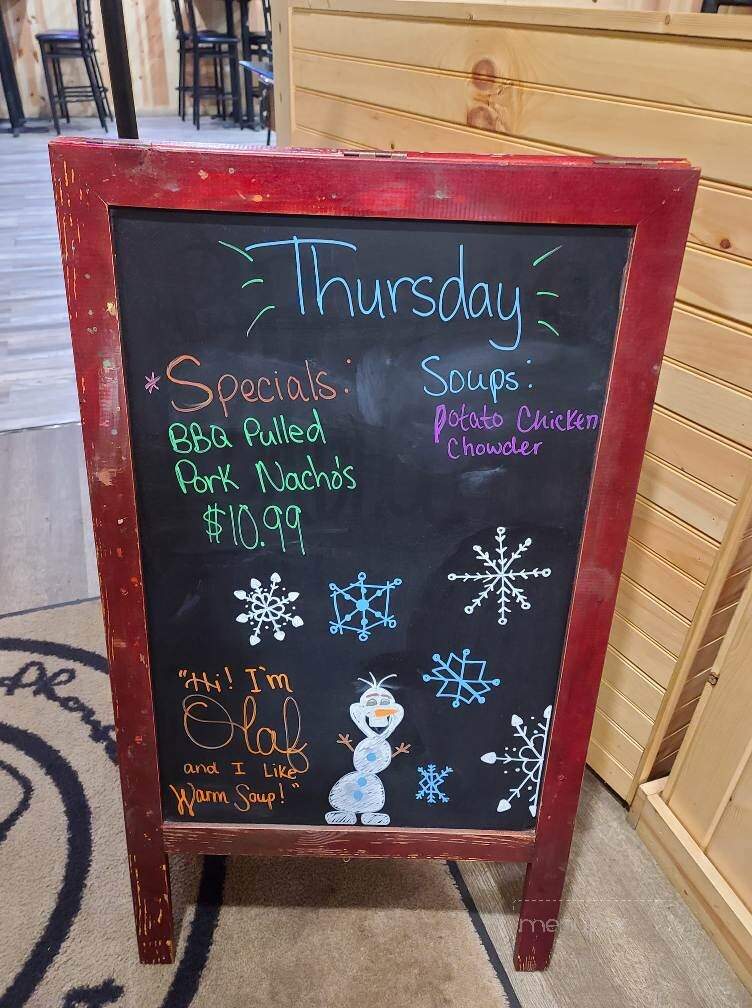 Thursday
*Specials:
BBQ Pulled
Pork Nacho's
$10.99
Soups:
Potato Chicken
Chowder
"Hi! I'm
Olaf
and I Like
Warm Soup!"